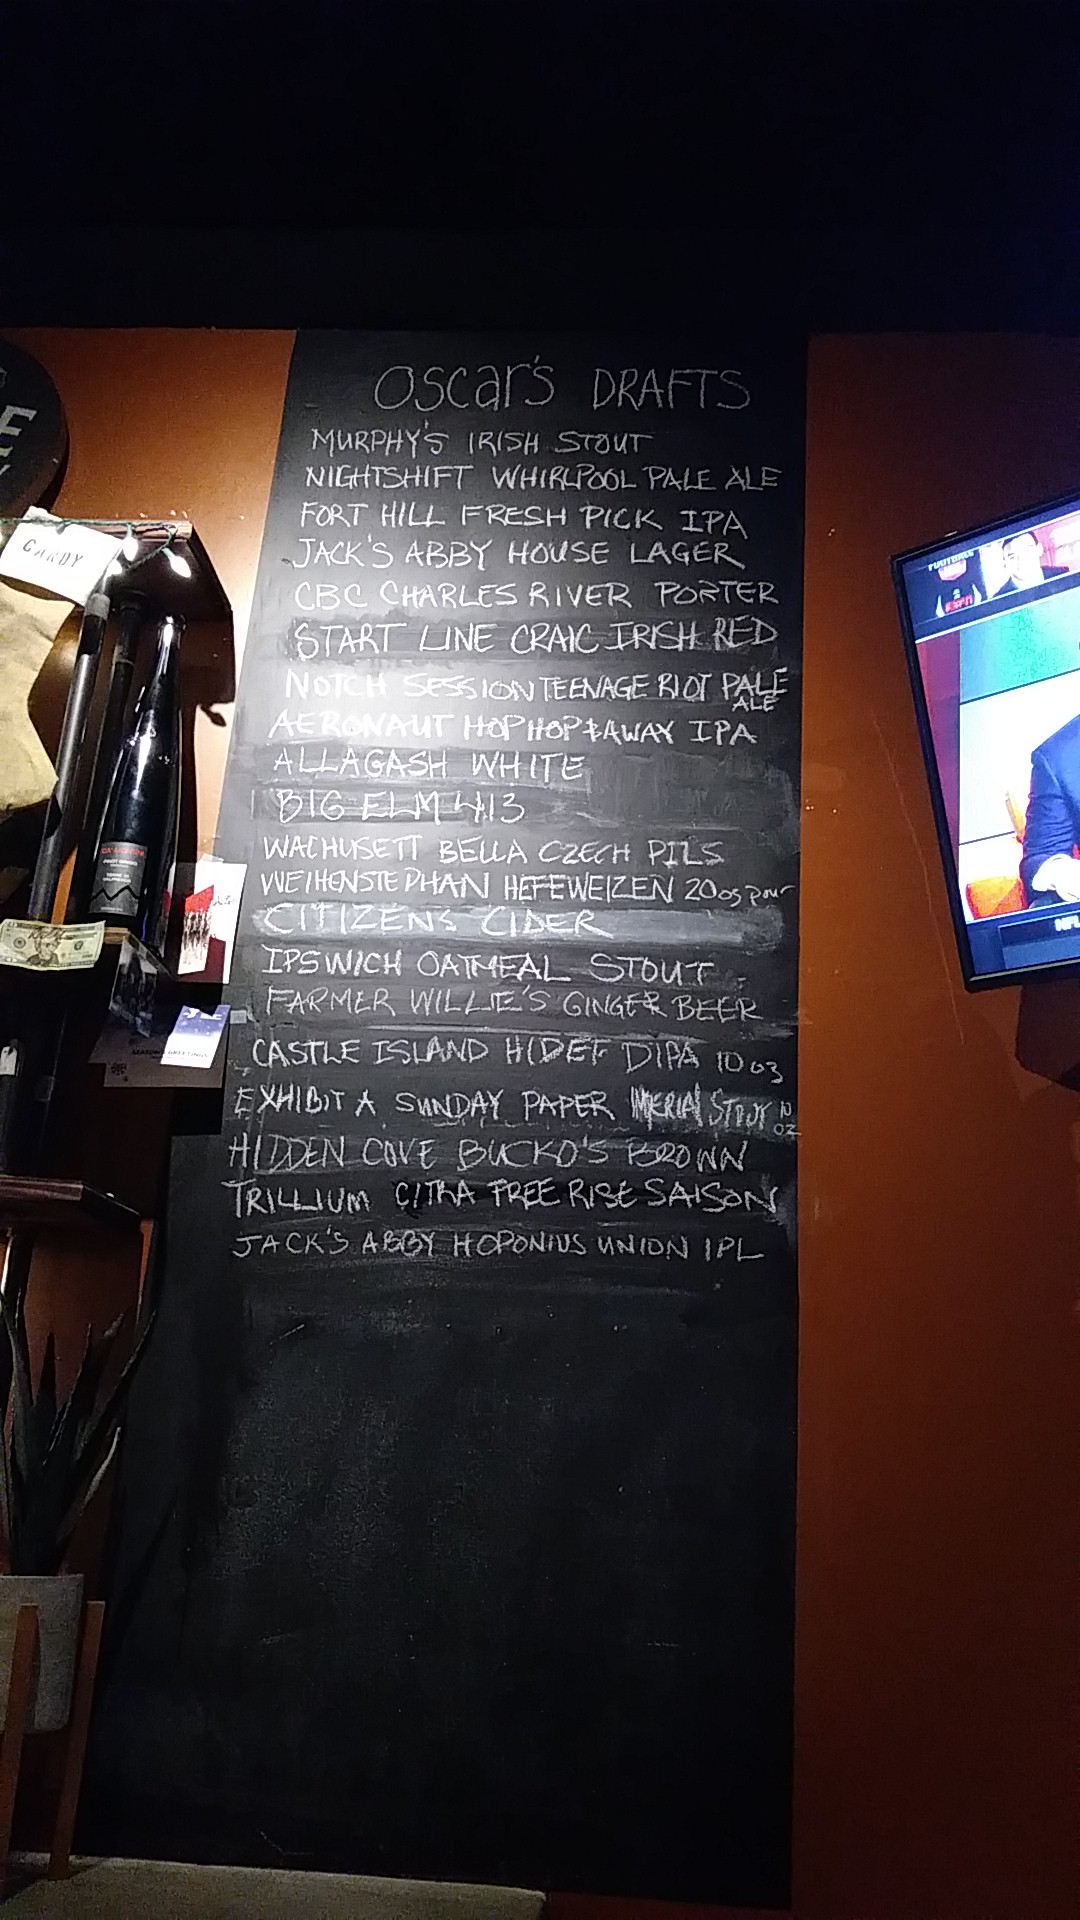 Oscar's DRAFTS
MURPHY'S IRISH STOUT
NIGHTSHIFT WHIRLPOOL PALE ALE
FORT HILL FRESH PICK IPA
JACK'S ABBY HOUSE LAGER
CBC CHARLES RIVER PORTER
START LINE CRAIC IRISH RED
NOTCH SESSION TEENAGE RIOT PALE
ALE
AERONAUT HOP HOP & AWAY IPA
ALLAGASH WHITE
BIG ELM 413
WACHUSETT BELLA CZECH PILS
WEIHENSTEPHAN HEFEWEIZEN 20oz pour
CITIZENS CIDER
IPSWICH OATMEAL STOUT
FARMER WILLIE'S GINGER BEER
CASTLE ISLAND HIDEF DIPA 10oz
EXHIBIT A SUNDAY PAPER IMPERIAL STOUT 10
OZ
HIDDEN COVE BUCKO'S BROWN
TRILLIUM CITRA FREE RISE SAISON
JACK'S ABBY HOPONIUS UNION IPL
CANDY
FOOTBALL
ESPN
NFL
SEASON'S GREETINGS